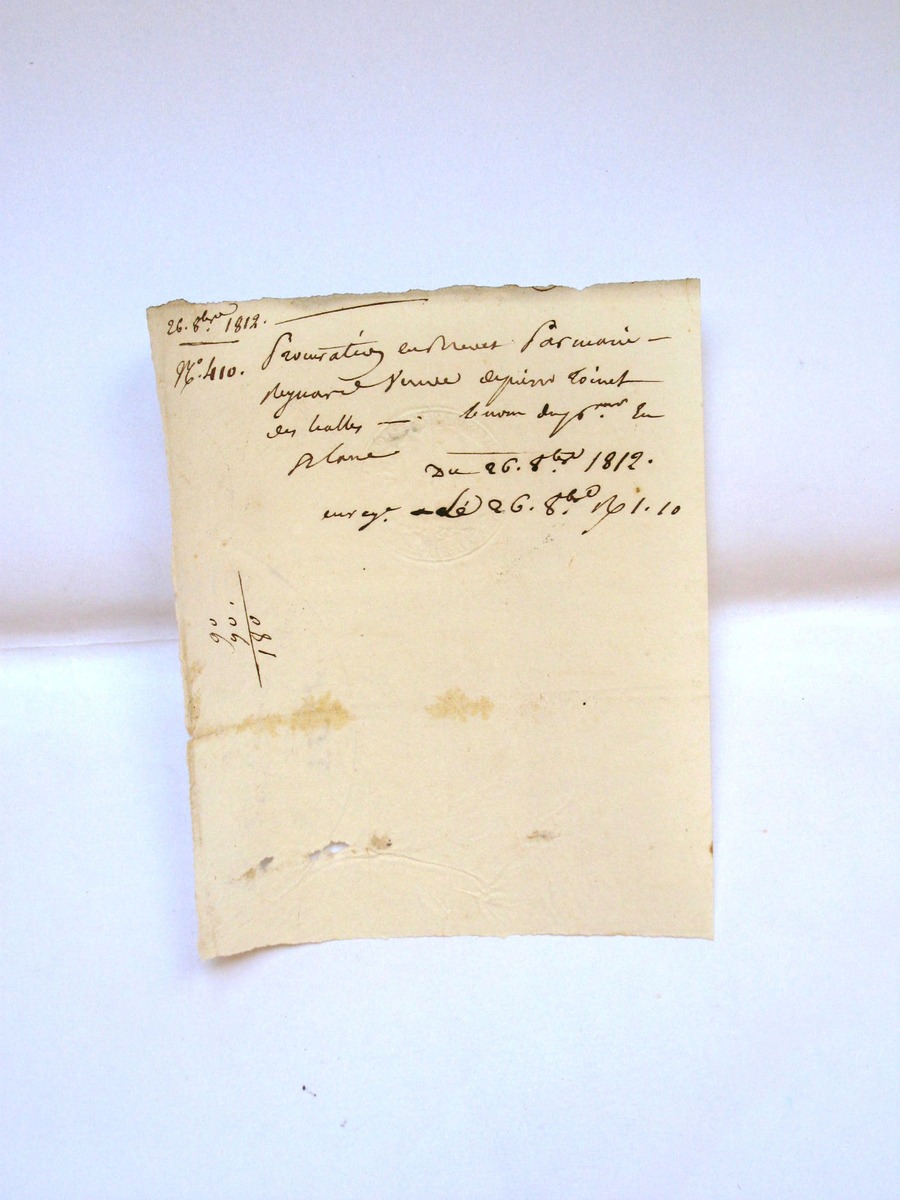 26. 8bre 1812.
No. 410. Procuration en brevet Par marie
Reynard Veuve de pierre Toinet
des halles — . le nom du p.reur En
Blanc
Du 26. 8bre 1812.
enreg. Le 26. 8bre R 1. 10
90
90.
180